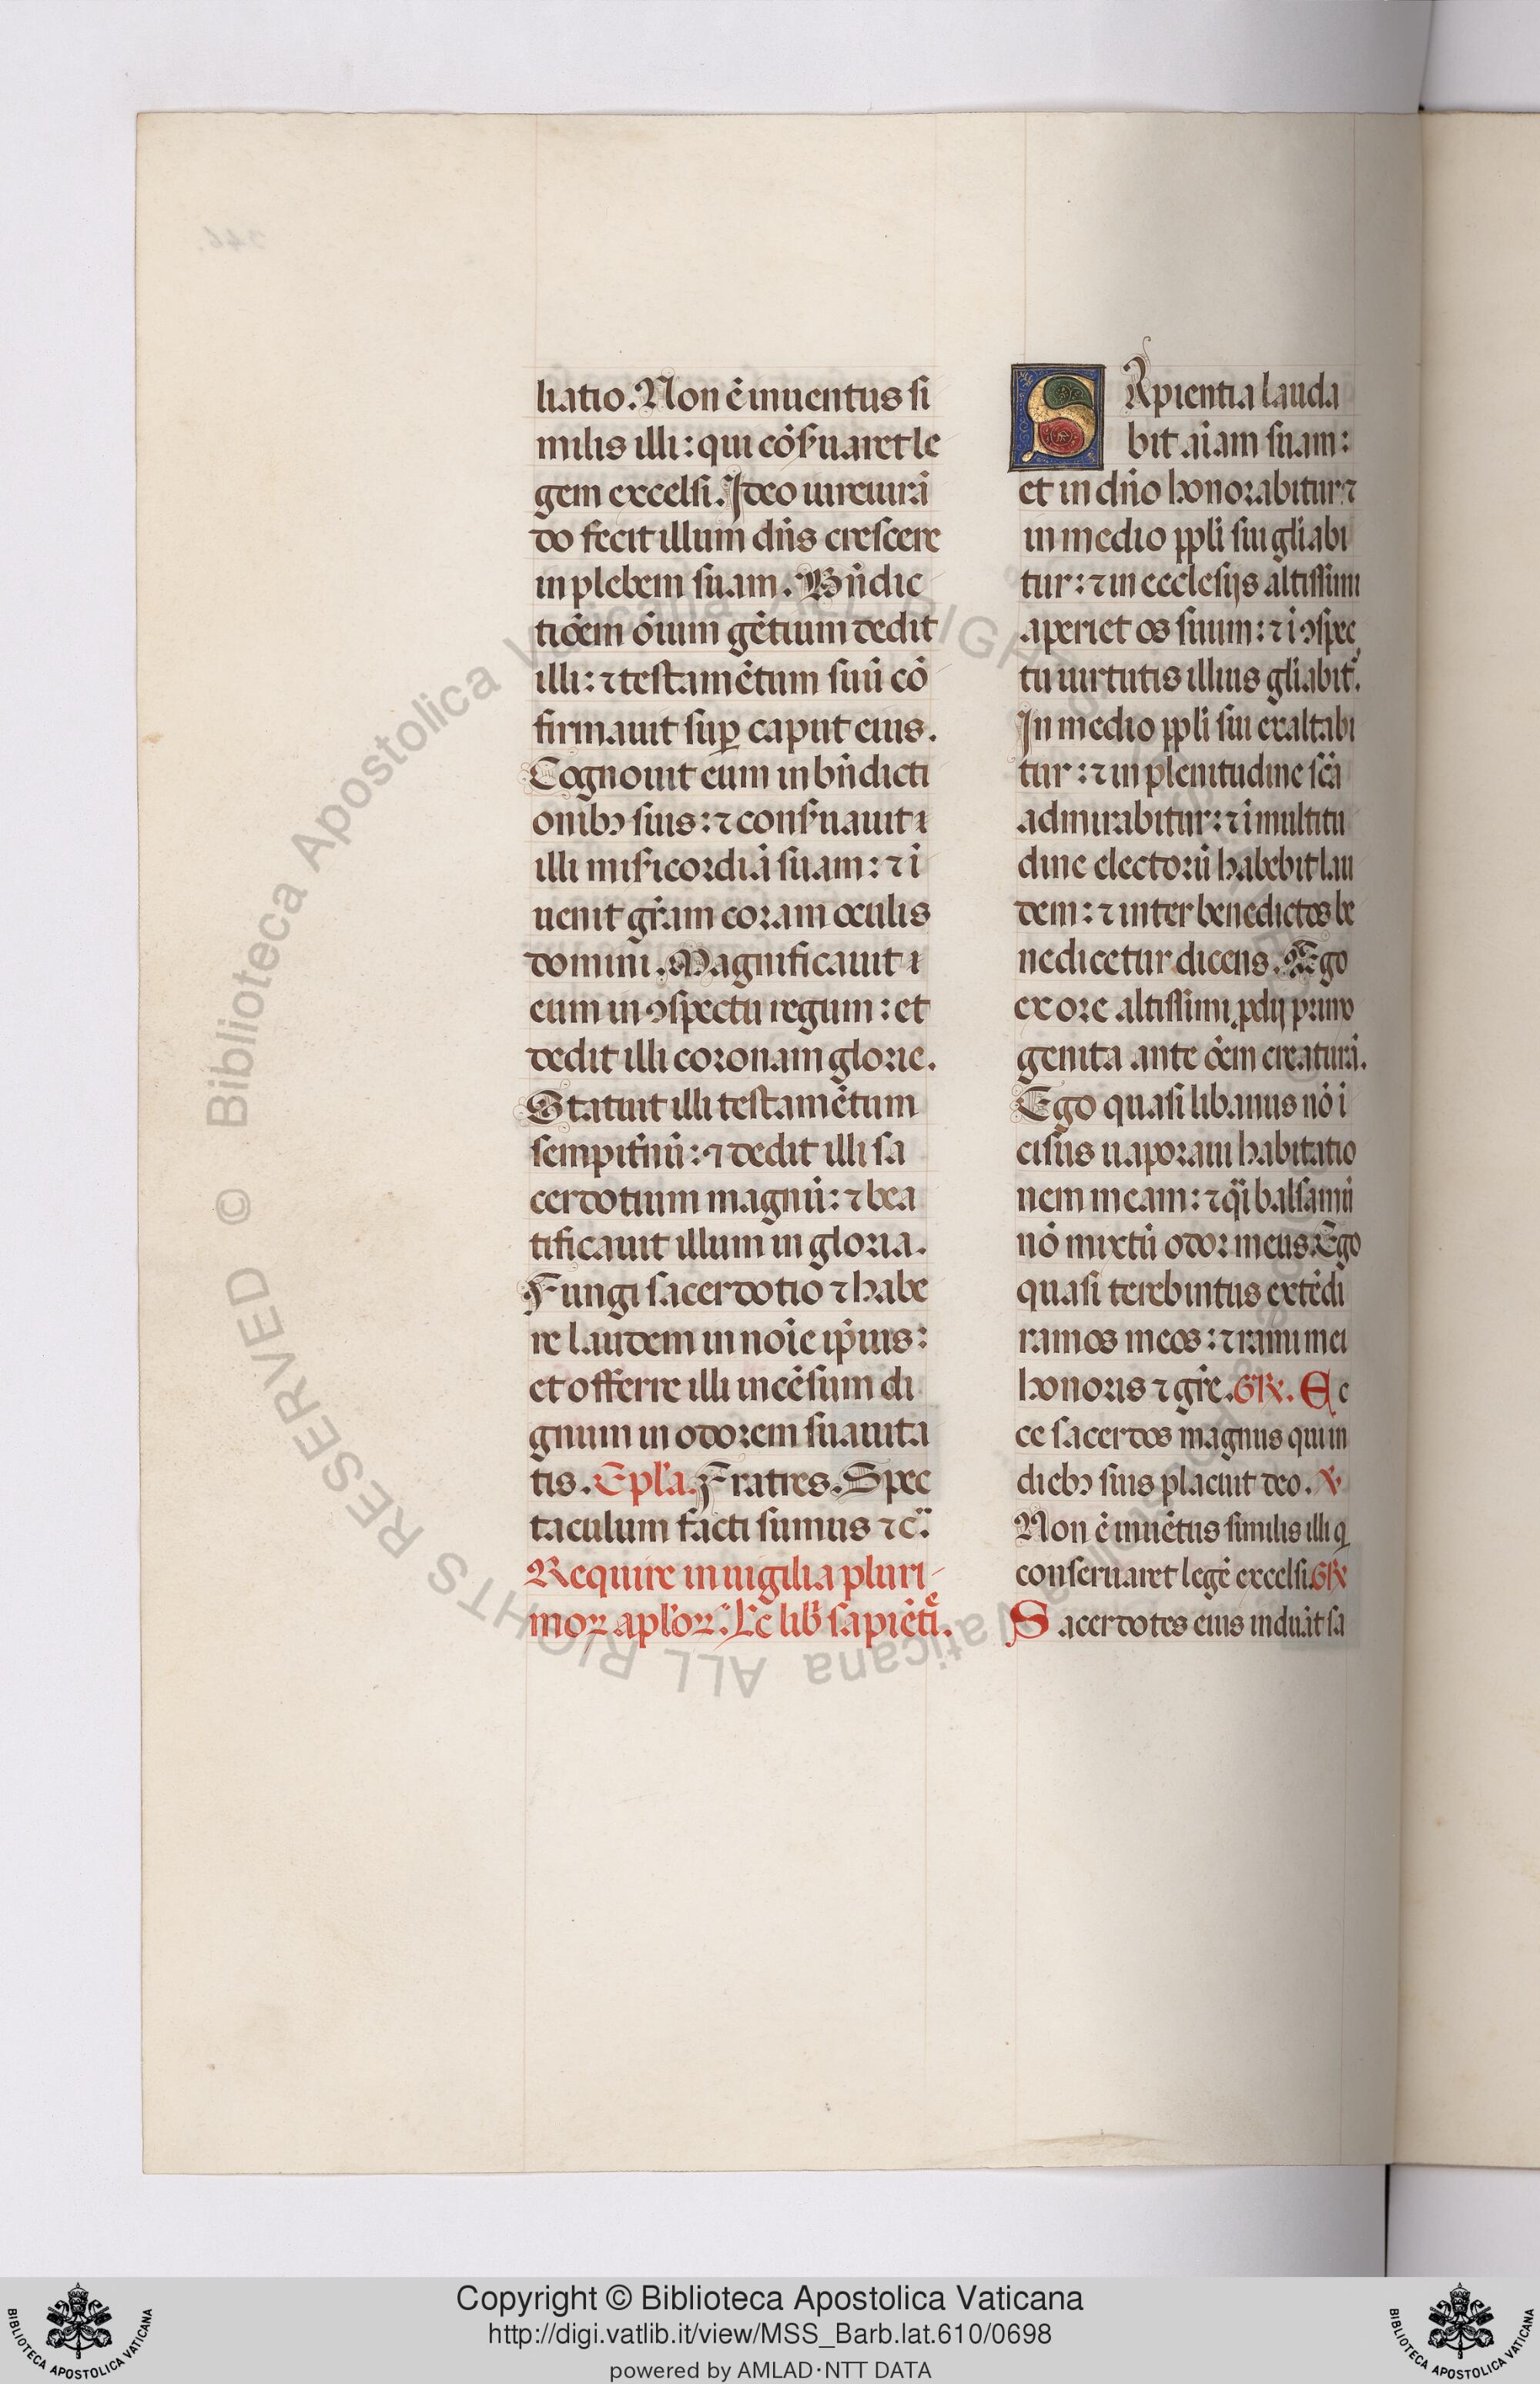 liatio. Non ē inuentus si
milis illi: qui cōs̄uaret le
gem excelsi. Ideo iureiurā
do fecit illum dn̄s crescere
in plebem suam. Bn̄dic
tiōem ōium gētium dedit
illi: ⁊ testamētum suū cō
firmauit suꝑ caput eius.
Cognouit eum in bn̄dicti
onibꝫ suis: ⁊ cons̄uauit
illi mis̄icordiā suam: ⁊ ī
uenit gr̄am coram oculis
domini. Magnificauit
eum in ꝯspectu regum: et
dedit illi coronam glorie.
Statuit illi testamētum
sempit̄nū: ⁊ dedit illi sa
cerdotium magnū: ⁊ bea
tificauit illum in gloria.
Fungi sacerdotio ⁊ habe
re laudem in noīe ip̄ius:
et offerre illi incēsum di
gnum in odorem suauita
tis. Epl̄a. Fratres. Spec
taculum facti sumus ⁊c̄.
Require in uigilia pluri-
moꝝ apl̄oꝝ. Lc̄ lib̄ sapiētiē.
SApientia lauda
bit aīam suam:
et in dn̄o honorabitur: ⁊
in medio ppl̄i sui gl̄iabi
tur: ⁊ in ecclesijs altissimi
aperiet os suum: ⁊ ī ꝯspec
tu uirtutis illius gl̄iabit̄.
In medio ppl̄i sui exaltabi
tur: ⁊ in plenitudine sc̄ā
admirabitur: ⁊ ī multitu
dine electorū habebit lau
dem: ⁊ inter benedictos be
nedicetur dicens. Ego
ex ore altissimi ꝓdij primo
genita ante ōem creaturā.
Ego quasi libanus nō ī
cisus uaporaui habitatio
nem meam: ⁊ qī balsamū
nō mixtū odor meus. Ego
quasi terebintus extēdi
ramos meos: ⁊ rami mei
honoris ⁊ gr̄e. GR̄. Ec
ce sacerdos magnus qui in
diebꝫ suis placuit deo. ℣
Non ē inuētus similis illi q̄
conseruaret legē excelsi. GR̄
Sacerdotes eius induāt sa
Copyright © Biblioteca Apostolica Vaticana
http://digi.vatlib.it/view/MSS_Barb.lat.610/0698
powered by AMLAD·NTT DATA
BIBLIOTECA APOSTOLICA VATICANA
BIBLIOTECA APOSTOLICA VATICANA